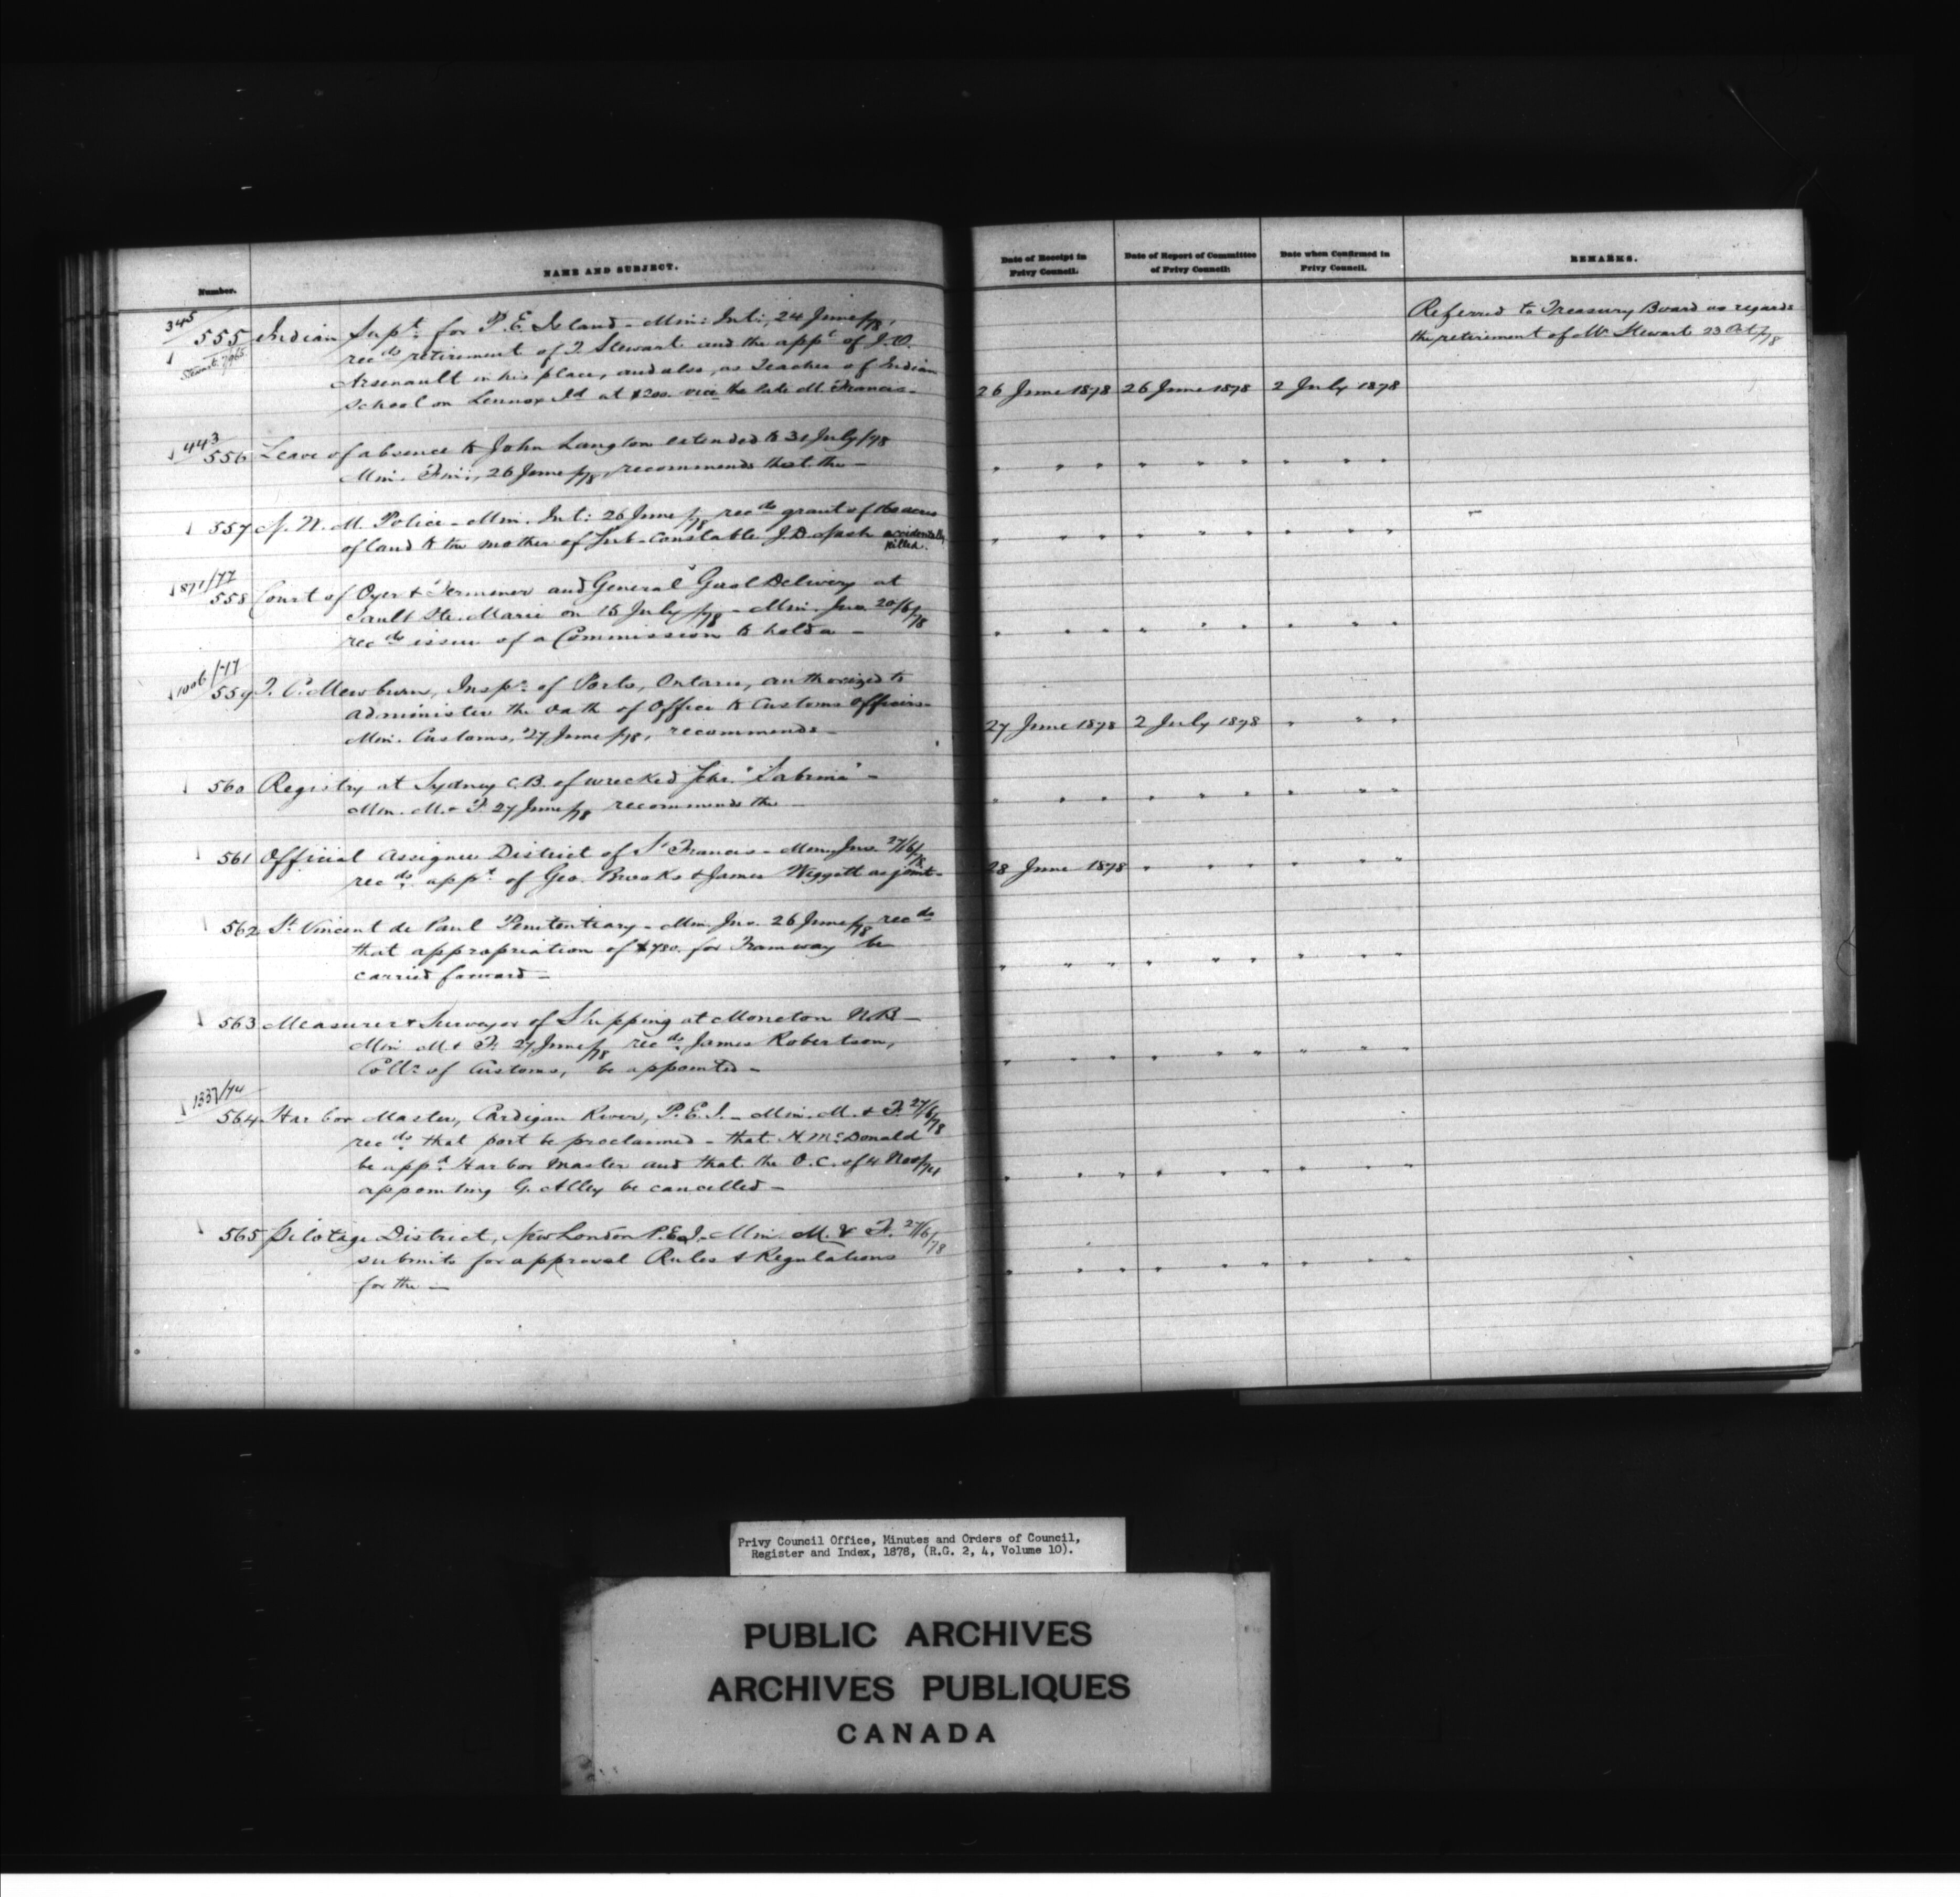 Number.
NAME AND SUBJECT.
345
555 Indian Supt. for P. E. Island - Min: Int:, 24 June/78,
Stewart 7065
recds retirement of T. Stewart and the appt of J. O.
Arsenault in his place, and also, as Teacher of Indian
School on Lennox Id at $200. vice the late M. Francis -
443
556 Leave of absence to John Langton extended to 31 July/78
Min. Fin:, 26 June/78, recommends that the -
557 N. W. M. Police - Min. Int: 26 June/78 recds grant of 160 acres
of land to the mother of Sub-Constable J. D. Nash accidentally
killed.
871/77
558 Court of Oyer & Terminer and General Gaol Delivery at
Sault Ste. Marie on 15 July/78 - Min. Jus. 20/6/78
recds issue of a Commission to hold a -
1006/77
559 T. C. Mewburn, Inspr. of Ports, Ontario, authorized to
administer the Oath of Office to Customs Officers -
Min. Customs, 27 June/78, recommends -
560 Registry at Sydney C.B. of wrecked Schr. "Sabrina" -
Min. M. & F. 27 June/78 recommends the -
561 Official Assignee District of St Francis - Min. Jus. 27/6/78
recds. appt of Geo. Brooks & James Wiggett as joint -
562 St Vincent de Paul Penitentiary - Min. Jus. 26 June/78 recds
that appropriation of $780. for Tramway be
carried forward -
563 Measurer & Surveyor of Shipping at Moncton N.B -
Min M. & F. 27 June/78 recds. James Robertson,
Collr. of Customs, be appointed -
1337/74
564 Harbor Master, Cardigan River, P. E. I. - Min. M. & F. 27/6/78
recds. that port be proclaimed - that H. McDonald
be appd. Harbor Master and that the O. C. of 4 Nov/74
appointing G. Alley be cancelled -
565 Pilotage District, New London P.E.I. - Min. M. & F. 27/6/78
submits for approval Rules & Regulations
for the -
Date of Receipt in
Privy Council.
Date of Report of Committee
of Privy Council:
Date when Confirmed in
Privy Council.
REMARKS.
Referred to Treasury Board as regards
the retirement of Mr Stewart 23 Oct/78
26 June 1878 26 June 1878 2 July 1878
" " " " " " " " "
" " " " " " " " "
" " " " " " " " "
27 June 1878 2 July 1878 " " "
" " " " " " " " "
28 June 1878 " " " " " "
" " " " " " " " "
" " " " " " " " "
" " " " " " " " "
" " " " " " " " "
Privy Council Office, Minutes and Orders of Council,
Register and Index, 1878, (R.G. 2, 4, Volume 10).
PUBLIC ARCHIVES
ARCHIVES PUBLIQUES
CANADA